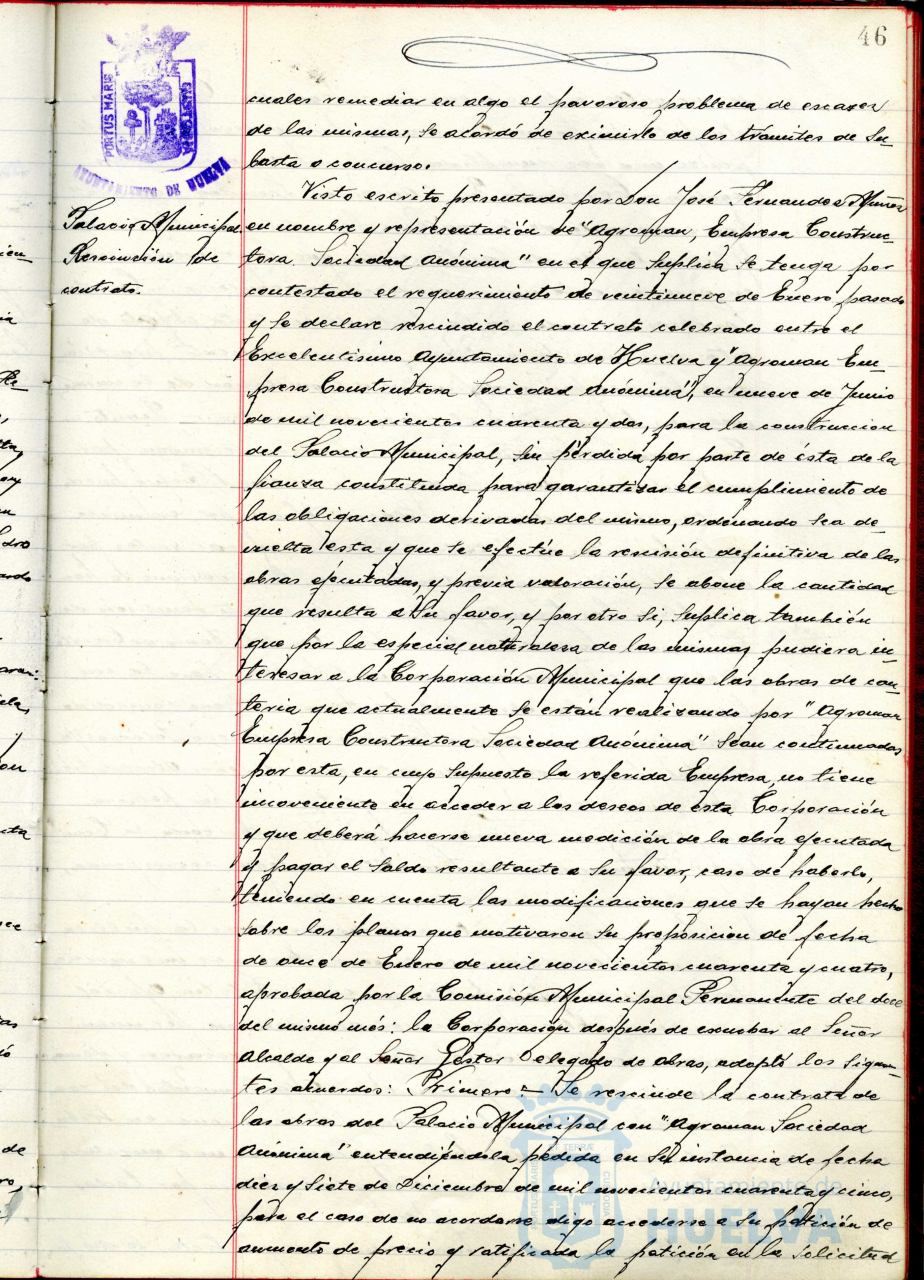 46
PORTUS MARIS
AYUNTAMIENTO DE HUELVA
cuales remediar en algo el pavoroso problema de escasez
de las mismas, se acordó de eximirlo de los trámites de Su-
basta o concurso.
Palacio Municipal
Rescinsión de
contrato.
Visto escrito presentado por Don José Fernandez Muñoz
en nombre y representación de "Agroman, Empresa Construc-
tora Sociedad Anónima" en el que Suplica Se tenga por
contestado el requerimiento de veintinueve de Enero pasado
y Se declare rescindido el contrato celebrado entre el
Excelentisimo Ayuntamiento de Huelva y "Agroman Em-
presa Constructora Sociedad Anónima", en nueve de Junio
de mil novecientos cuarenta y dos, para la construccion
del Palacio Municipal, Sin pérdida por parte de ésta de la
fianza constituida para garantizar el cumplimiento de
las obligaciones derivadas del mismo, ordenando Sea de-
vuelta esta y que Se efectúe la rescisión definitiva de las
obras ejecutadas, y previa valoración, se abone la cantidad
que resulta a Su favor, y por otro Si, Suplica también
que por la especial naturaleza de las mismas pudiera in-
teresar a la Corporación Municipal que las obras de can-
teria que actualmente Se están realizando por "Agroman
Empresa Constructora Sociedad Anónima" Sean continuadas
por esta, en cuyo Supuesto la referida Empresa, no tiene
incoveniente en acceder a los deseos de esta Corporación
y que deberá hacerse nueva medición de la obra ejecutada
y pagar el Saldo resultante a Su favor, caso de haberlo,
teniendo en cuenta las modificaciones que se hayan hecho
Sobre los planos que motivaron Su proposición de fecha
de once de Enero de mil novecientos cuarenta y cuatro,
aprobada por la Comisión Municipal Permanente del doce
del mismo més: la Corporación después de escuchar al Señor
Alcalde y al Señor Gestor Delegado de obras, adoptó los Siguien-
tes acuerdos: Primero:- Se rescinde la contrata de
las obras del Palacio Municipal con "Agroman Sociedad
Anónima" entendiéndola pedida en Su instancia de fecha
diez y Siete de Diciembre de mil novecientos cuarenta y cinco,
para el caso de no acordarse digo accederse a Su petición de
aumento de precio y ratificada la petición en la Solicitud
Ayuntamiento de
HUELVA